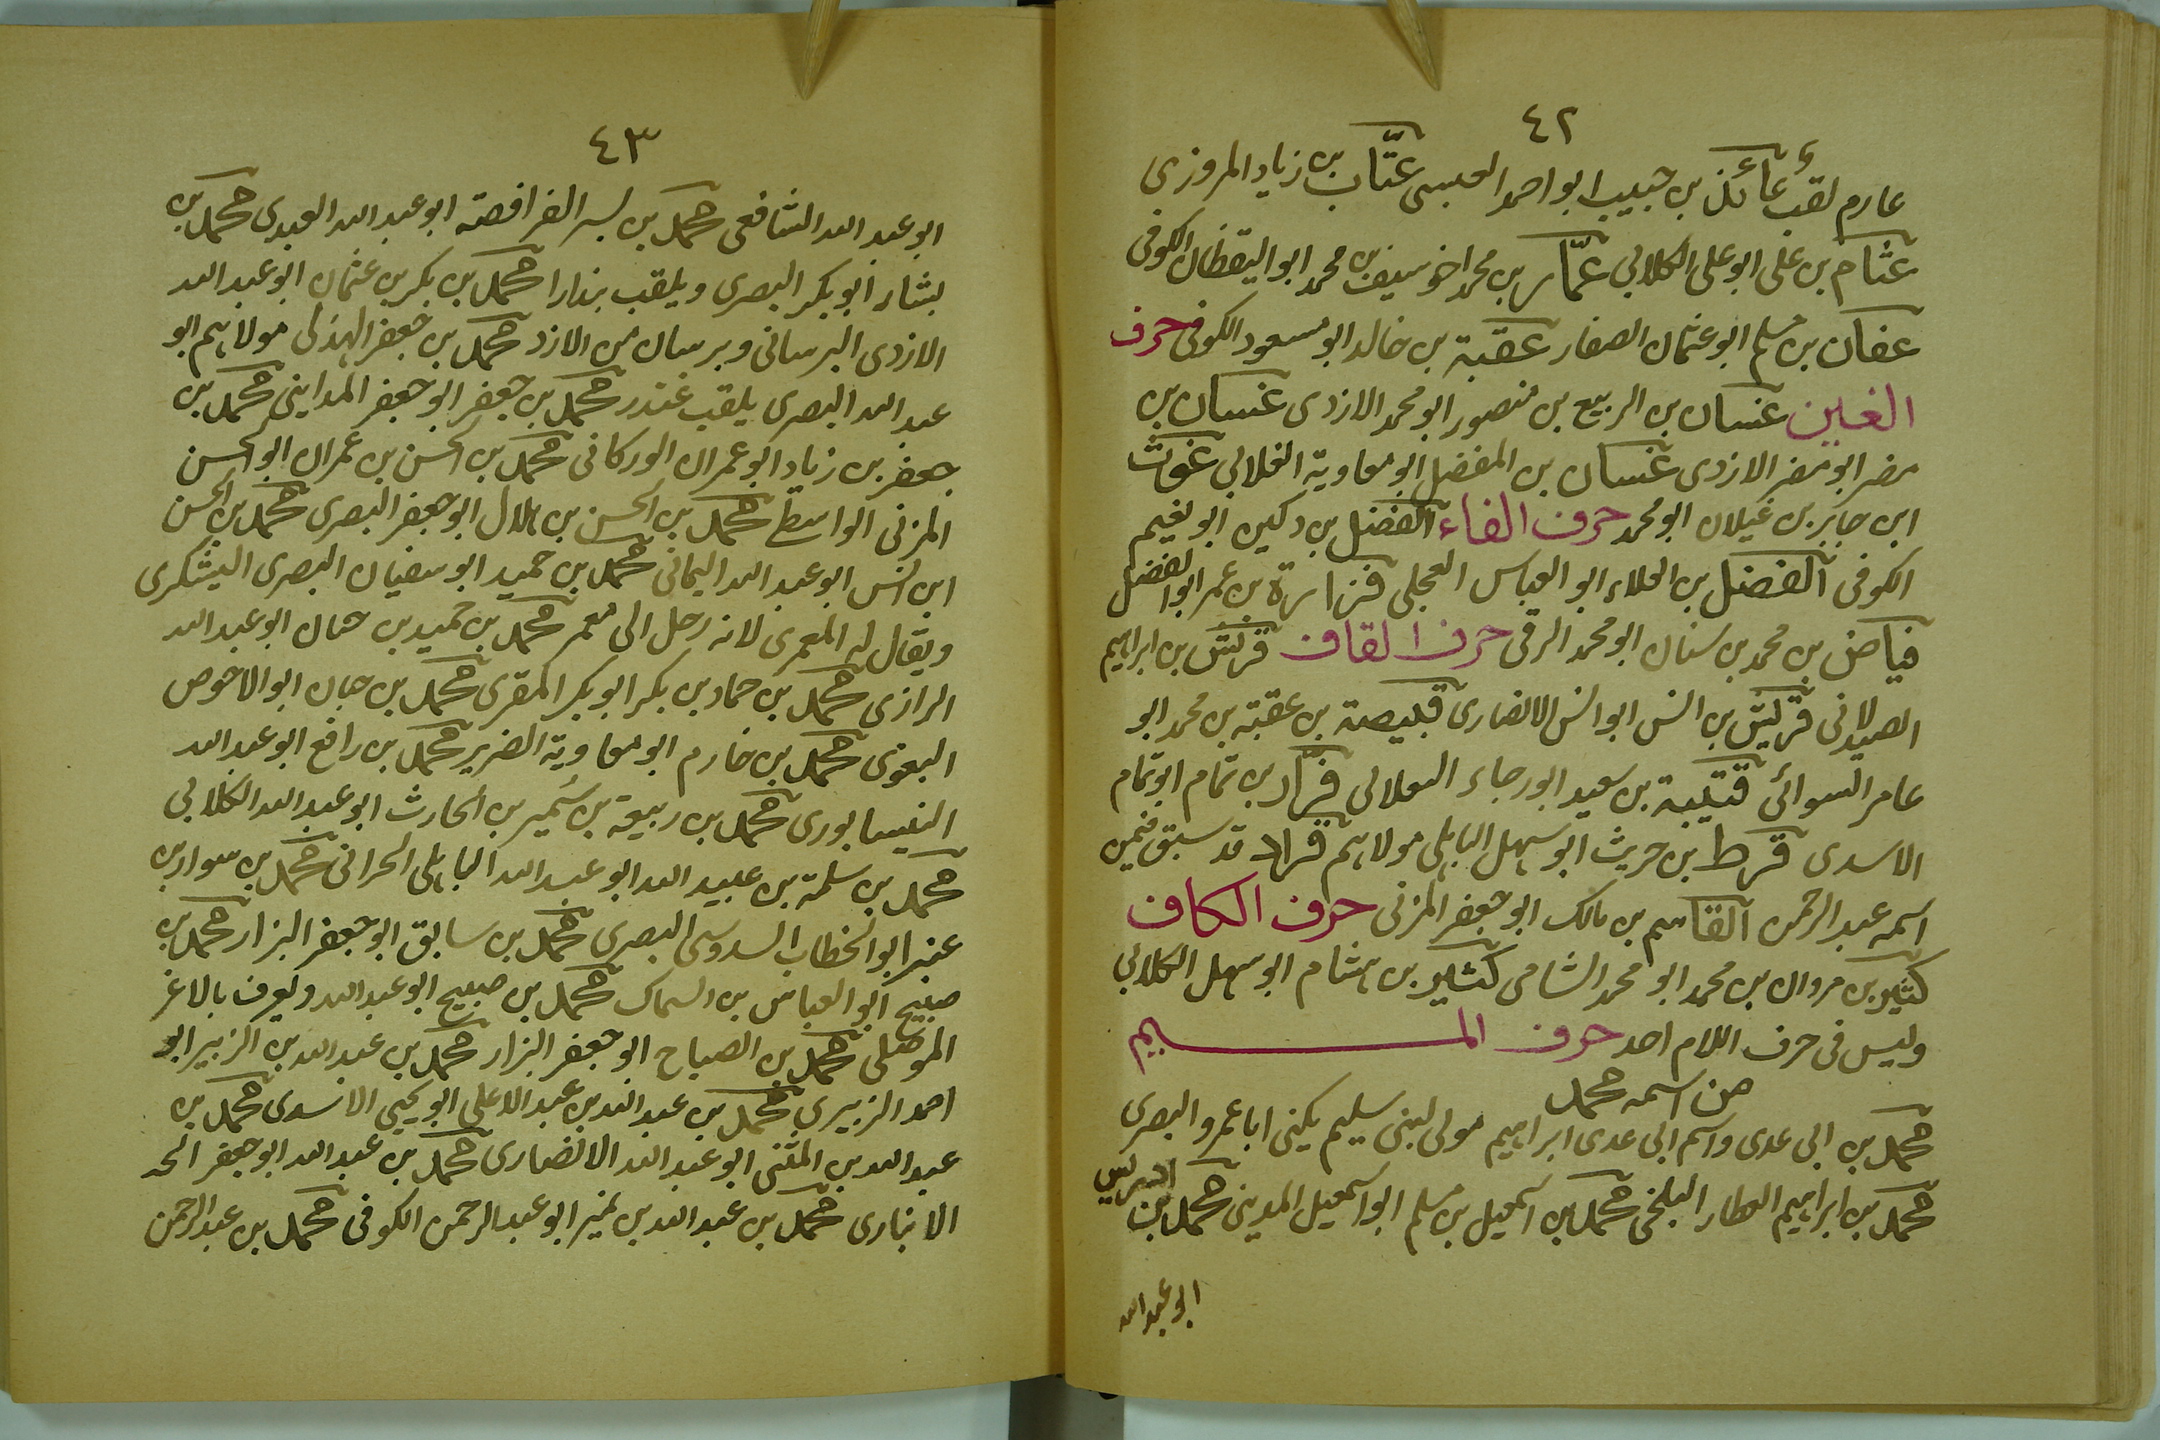 ٤٢
عارم لقب عائذ بن حبيب ابو احمد العبسى عتّاب بن زياد المروزى
عثام بن على ابو على الكلابي عمّار بن محمد اخو سيف بن محمد ابو اليقظان الكوفى
عفان بن مسلم ابو عثمان الصفار عقبة بن خالد ابو مسعود الكوفى حرف
الغين غسان بن الربيع بن منصور ابو محمد الازدى غسان بن
مضر ابو مضر الازدى غسان بن المفضل ابو معاوية الغلابي غوث
ابن جابر بن غيلان ابو محمد حرف الفاء الفضل بن دكين ابو نعيم
الكوفى الفضل بن العلاء ابو العباس العجلى فزارة بن عمر ابو الفضل
فياض بن محمد بن سنان ابو محمد الرقى حرف القاف قريش بن ابراهيم
الصيدلانى قريش بن انس ابو انس الانصارى قبيصة بن عقبة بن محمد ابو
عامر السوائى قتيبة بن سعيد ابو رجاء البغلانى قران بن تمام ابو تمام
الاسدى قرط بن حريث ابو سهل الباهلى مولاهم قراد قد سبق فيمن
اسمه عبد الرحمن القاسم بن مالك ابو جعفر المزنى حرف الكاف
كثير بن مروان بن محمد ابو محمد الشامى كثير بن هشام ابو سهل الكلابي
وليس فى حرف اللام احد حرف الميم
من اسمه محمد
محمد بن ابى عدى واسم ابى عدى ابراهيم مولى لبنى سليم يكنى ابا عمرو البصرى
محمد بن ابراهيم العطار البلخى محمد بن اسمعيل بن مسلم ابو اسمعيل المدينى محمد بن ادريس
ابو عبد الله
٤٣
ابو عبد الله الشافعى محمد بن بشر الفرافصة ابو عبد الله العبدى محمد بن
بشار ابو بكر البصرى ويلقب بندارا محمد بن بكر بن عثمان ابو عبد الله
الازدى البرسانى وبرسان من الازد محمد بن جعفر الهذلى مولاهم ابو
عبد الله البصرى يلقب غندر محمد بن جعفر ابو جعفر المداينى محمد بن
جعفر بن زياد ابو عمران الوركانى محمد بن الحسن بن عمران ابو الحسن
المزنى الواسطى محمد بن الحسن بن هلال ابو جعفر البصرى محمد بن الحسن
ابن انس ابو عبد الله اليمانى محمد بن حميد ابو سفيان البصرى اليشكرى
ويقال له المعمرى لانه رحل الى معمر محمد بن حميد بن حيان ابو عبد الله
الرازى محمد بن حماد بن بكر ابو بكر المقرى محمد بن حيان ابو الاحوص
البغوى محمد بن خازم ابو معاوية الضرير محمد بن رافع ابو عبد الله
النيسابورى محمد بن ربيعة بن سُمير بن الحارث ابو عبد الله الكلابي
محمد بن سلمة بن عبيد الله ابو عبد الله الباهلى الحرانى محمد بن سوار بن
عنبر ابو الخطاب السدوسى البصرى محمد بن سابق ابو جعفر البزار محمد بن
صبيح ابو العباس بن السماك محمد بن صبيح ابو عبد الله ويعرف بالاغر
الموصلى محمد بن الصباح ابو جعفر البزار محمد بن عبد الله بن الزبير ابو
احمد الزبيرى محمد بن عبد الله بن عبد الاعلى ابو يحيى الاسدى محمد بن
عبد الله بن المثنى ابو عبد الله الانصارى محمد بن عبد الله ابو جعفر الحد
الانبارى محمد بن عبد الله بن نمير ابو عبد الرحمن الكوفى محمد بن عبد الرحمن